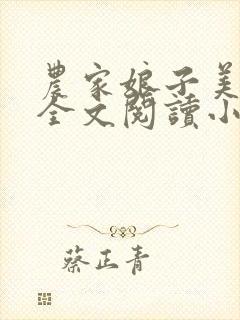 農家娘子美
全文閱讀小
蔡正青